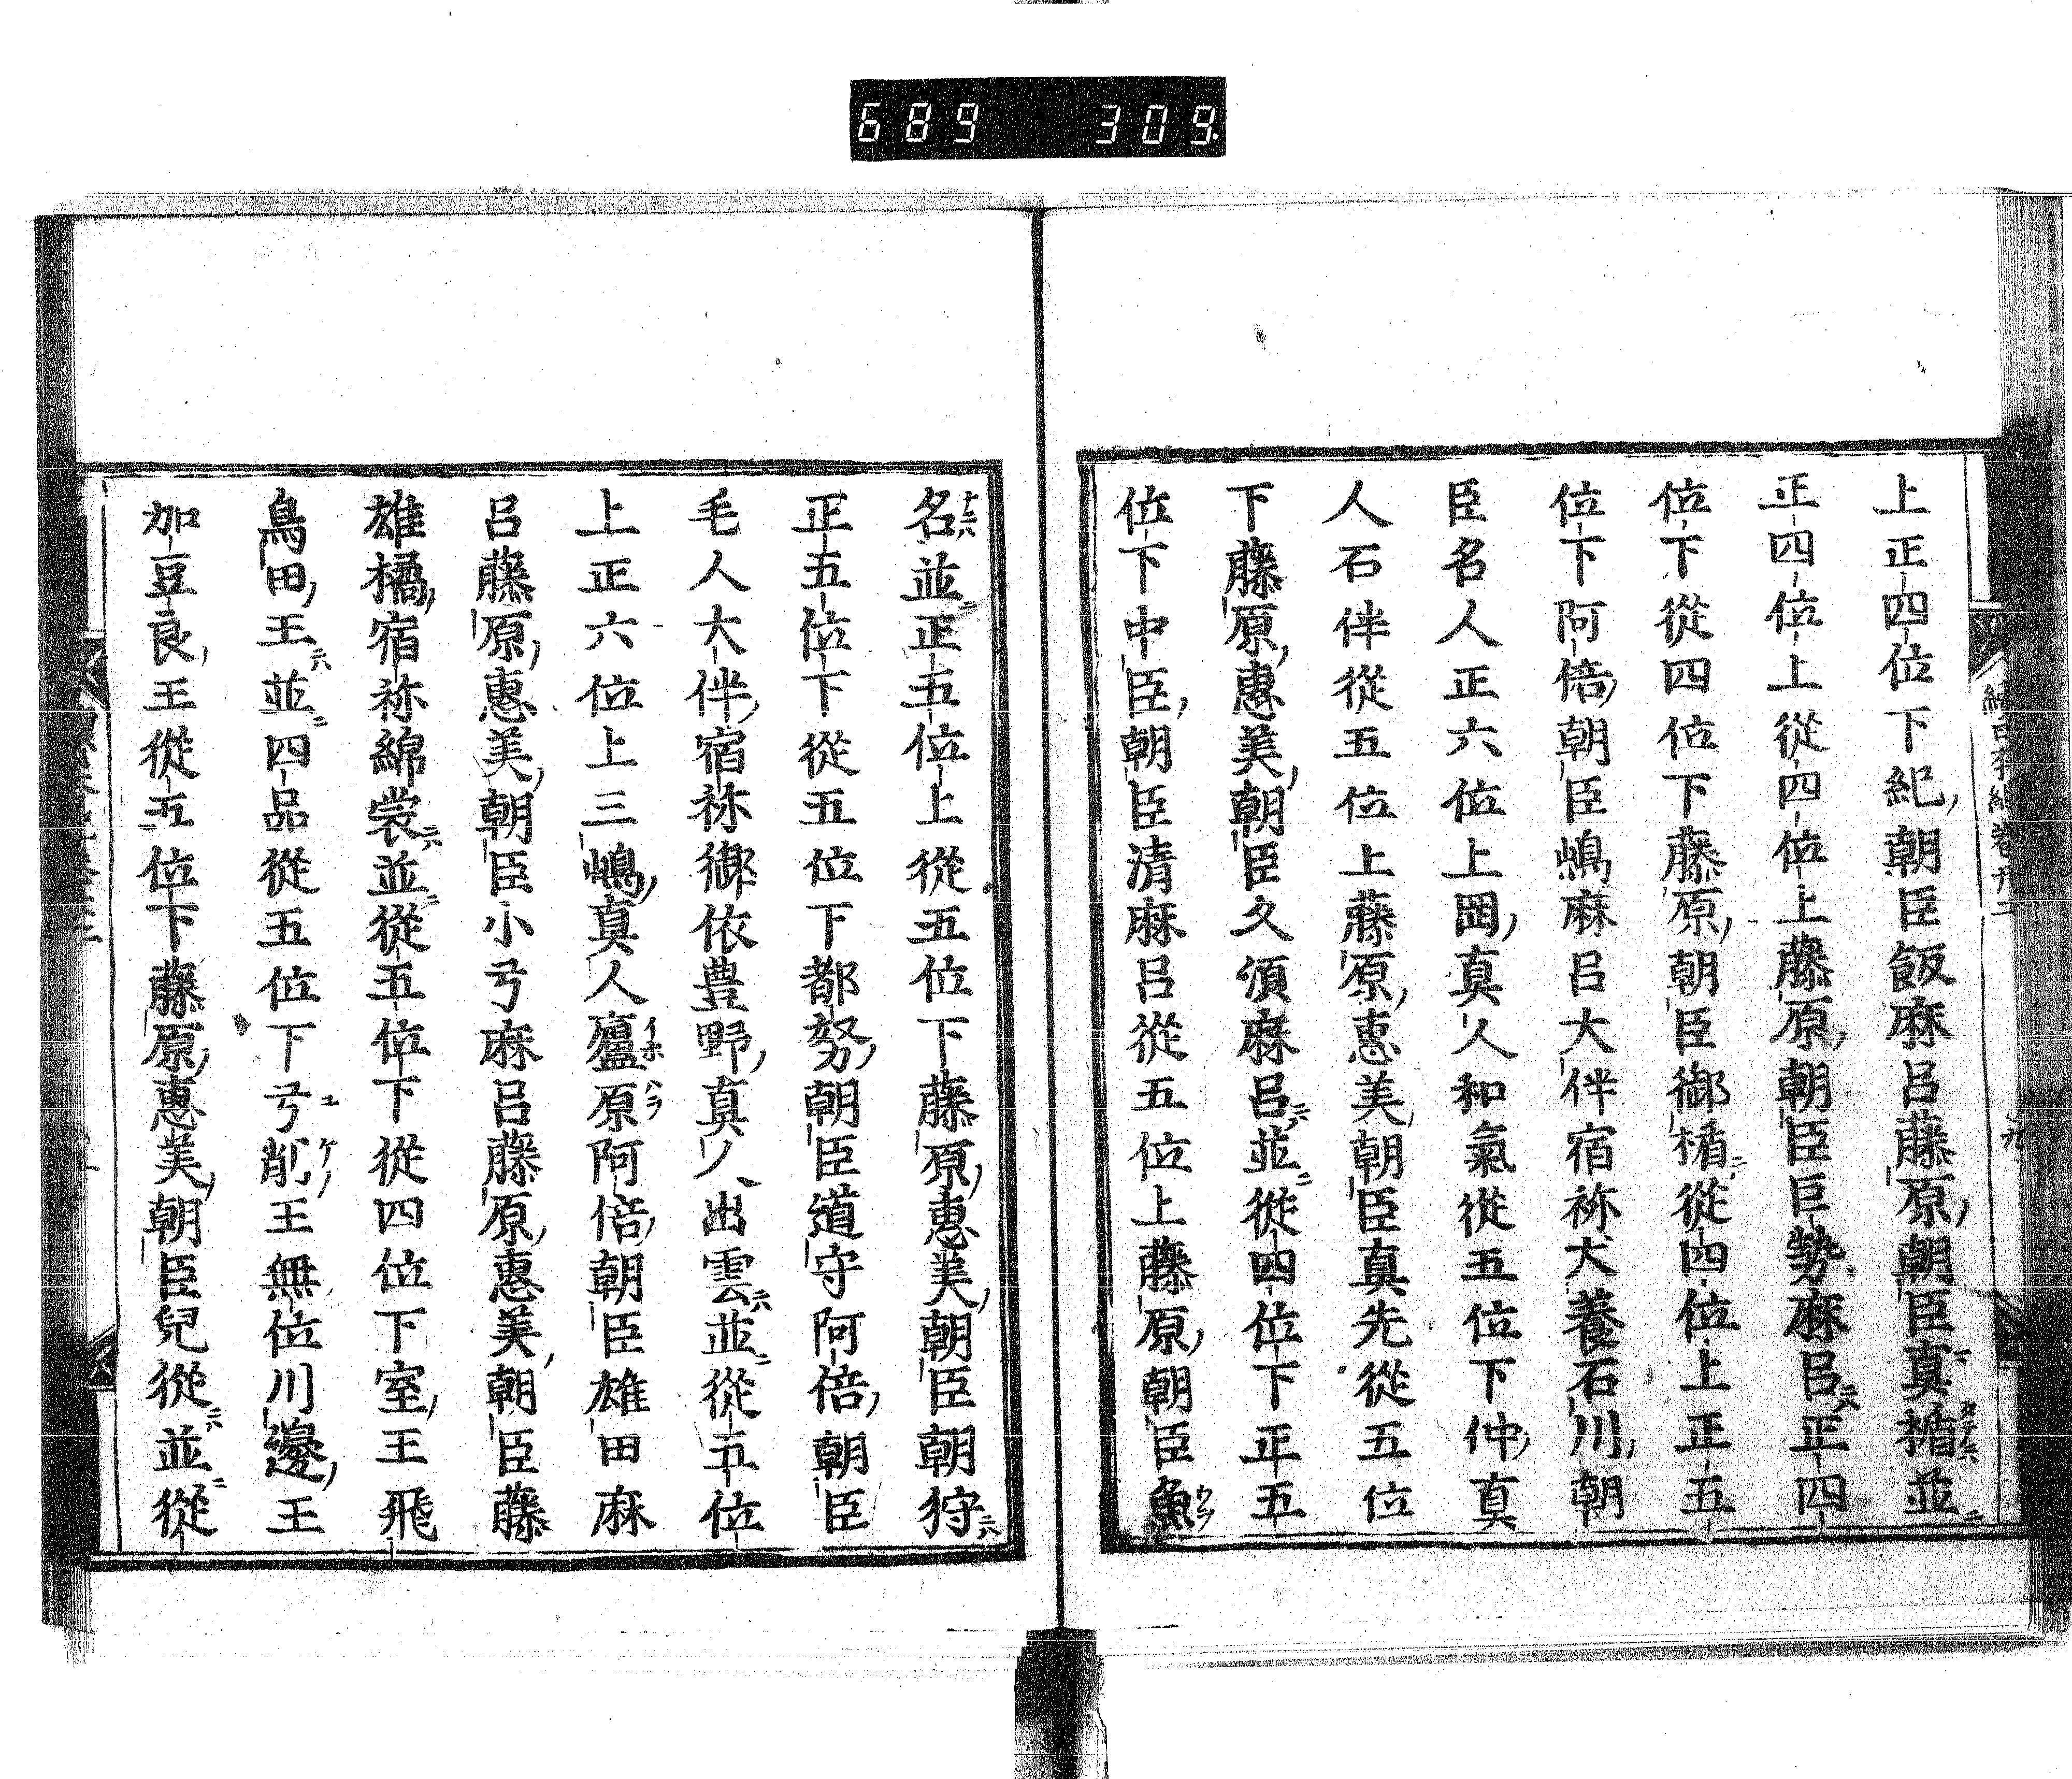 689 309
上正四位下紀朝臣飯麻呂藤原朝臣真楯並
正四位上從四位上藤原朝臣巨勢麻呂正四
位下從四位下藤原朝臣御楯從四位上正五
位下阿倍朝臣嶋麻呂大伴宿祢犬養石川朝
臣名人正六位上岡真人和氣從五位下仲真
人石伴從五位上藤原惠美朝臣真先從五位
下藤原惠美朝臣久須麻呂並從四位下正五
位下中臣朝臣清麻呂從五位上藤原朝臣魚
名並正五位上從五位下藤原惠美朝臣朝狩
正五位下從五位下都努朝臣道守阿倍朝臣
毛人大伴宿祢御依豊野真人出雲並從五位
上正六位上三嶋真人廬原阿倍朝臣雄田麻
呂藤原惠美朝臣小弓麻呂藤原惠美朝臣藤
雄橘宿祢綿裳並從五位下從四位下室王飛
鳥田王並四品從五位下弓削王無位川邊王
加豆良王從五位下藤原惠美朝臣兒從並從